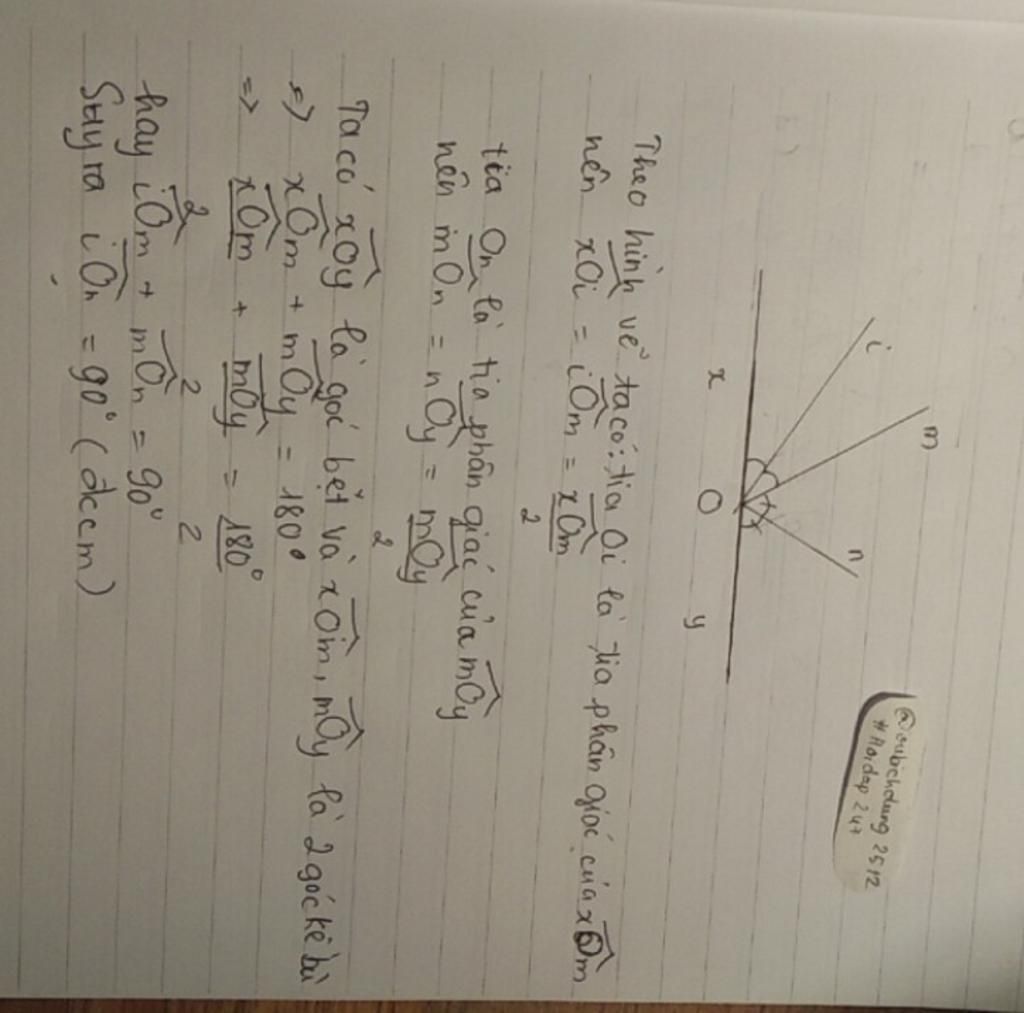 @vubichdung 2512
#Hoidap 247
i
m
n
x
O
y
Theo hình vẽ ta có: tia Oi là tia phân giác của $\widehat{xOm}$
nên $\widehat{xOi} = \widehat{iOm} = \frac{\widehat{xOm}}{2}$
tia On là tia phân giác của $\widehat{mOy}$
nên $\widehat{mOn} = \widehat{nOy} = \frac{\widehat{mOy}}{2}$
Ta có $\widehat{xOy}$ là góc bẹt và $\widehat{xOm}$, $\widehat{mOy}$ là 2 góc kề bù
=> $\widehat{xOm} + \widehat{mOy} = 180°$
=> $\frac{\widehat{xOm}}{2} + \frac{\widehat{mOy}}{2} = \frac{180°}{2}$
hay $\widehat{iOm} + \widehat{mOn} = 90°$
Suy ra $\widehat{iOn} = 90°$ (đccm)